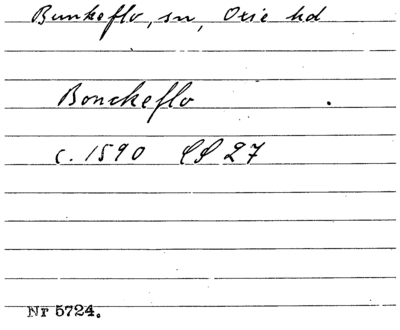 Bunkeflo, sn, Oxie hd
Bonckeflo
c. 1590 LS 27
Nr 5724.